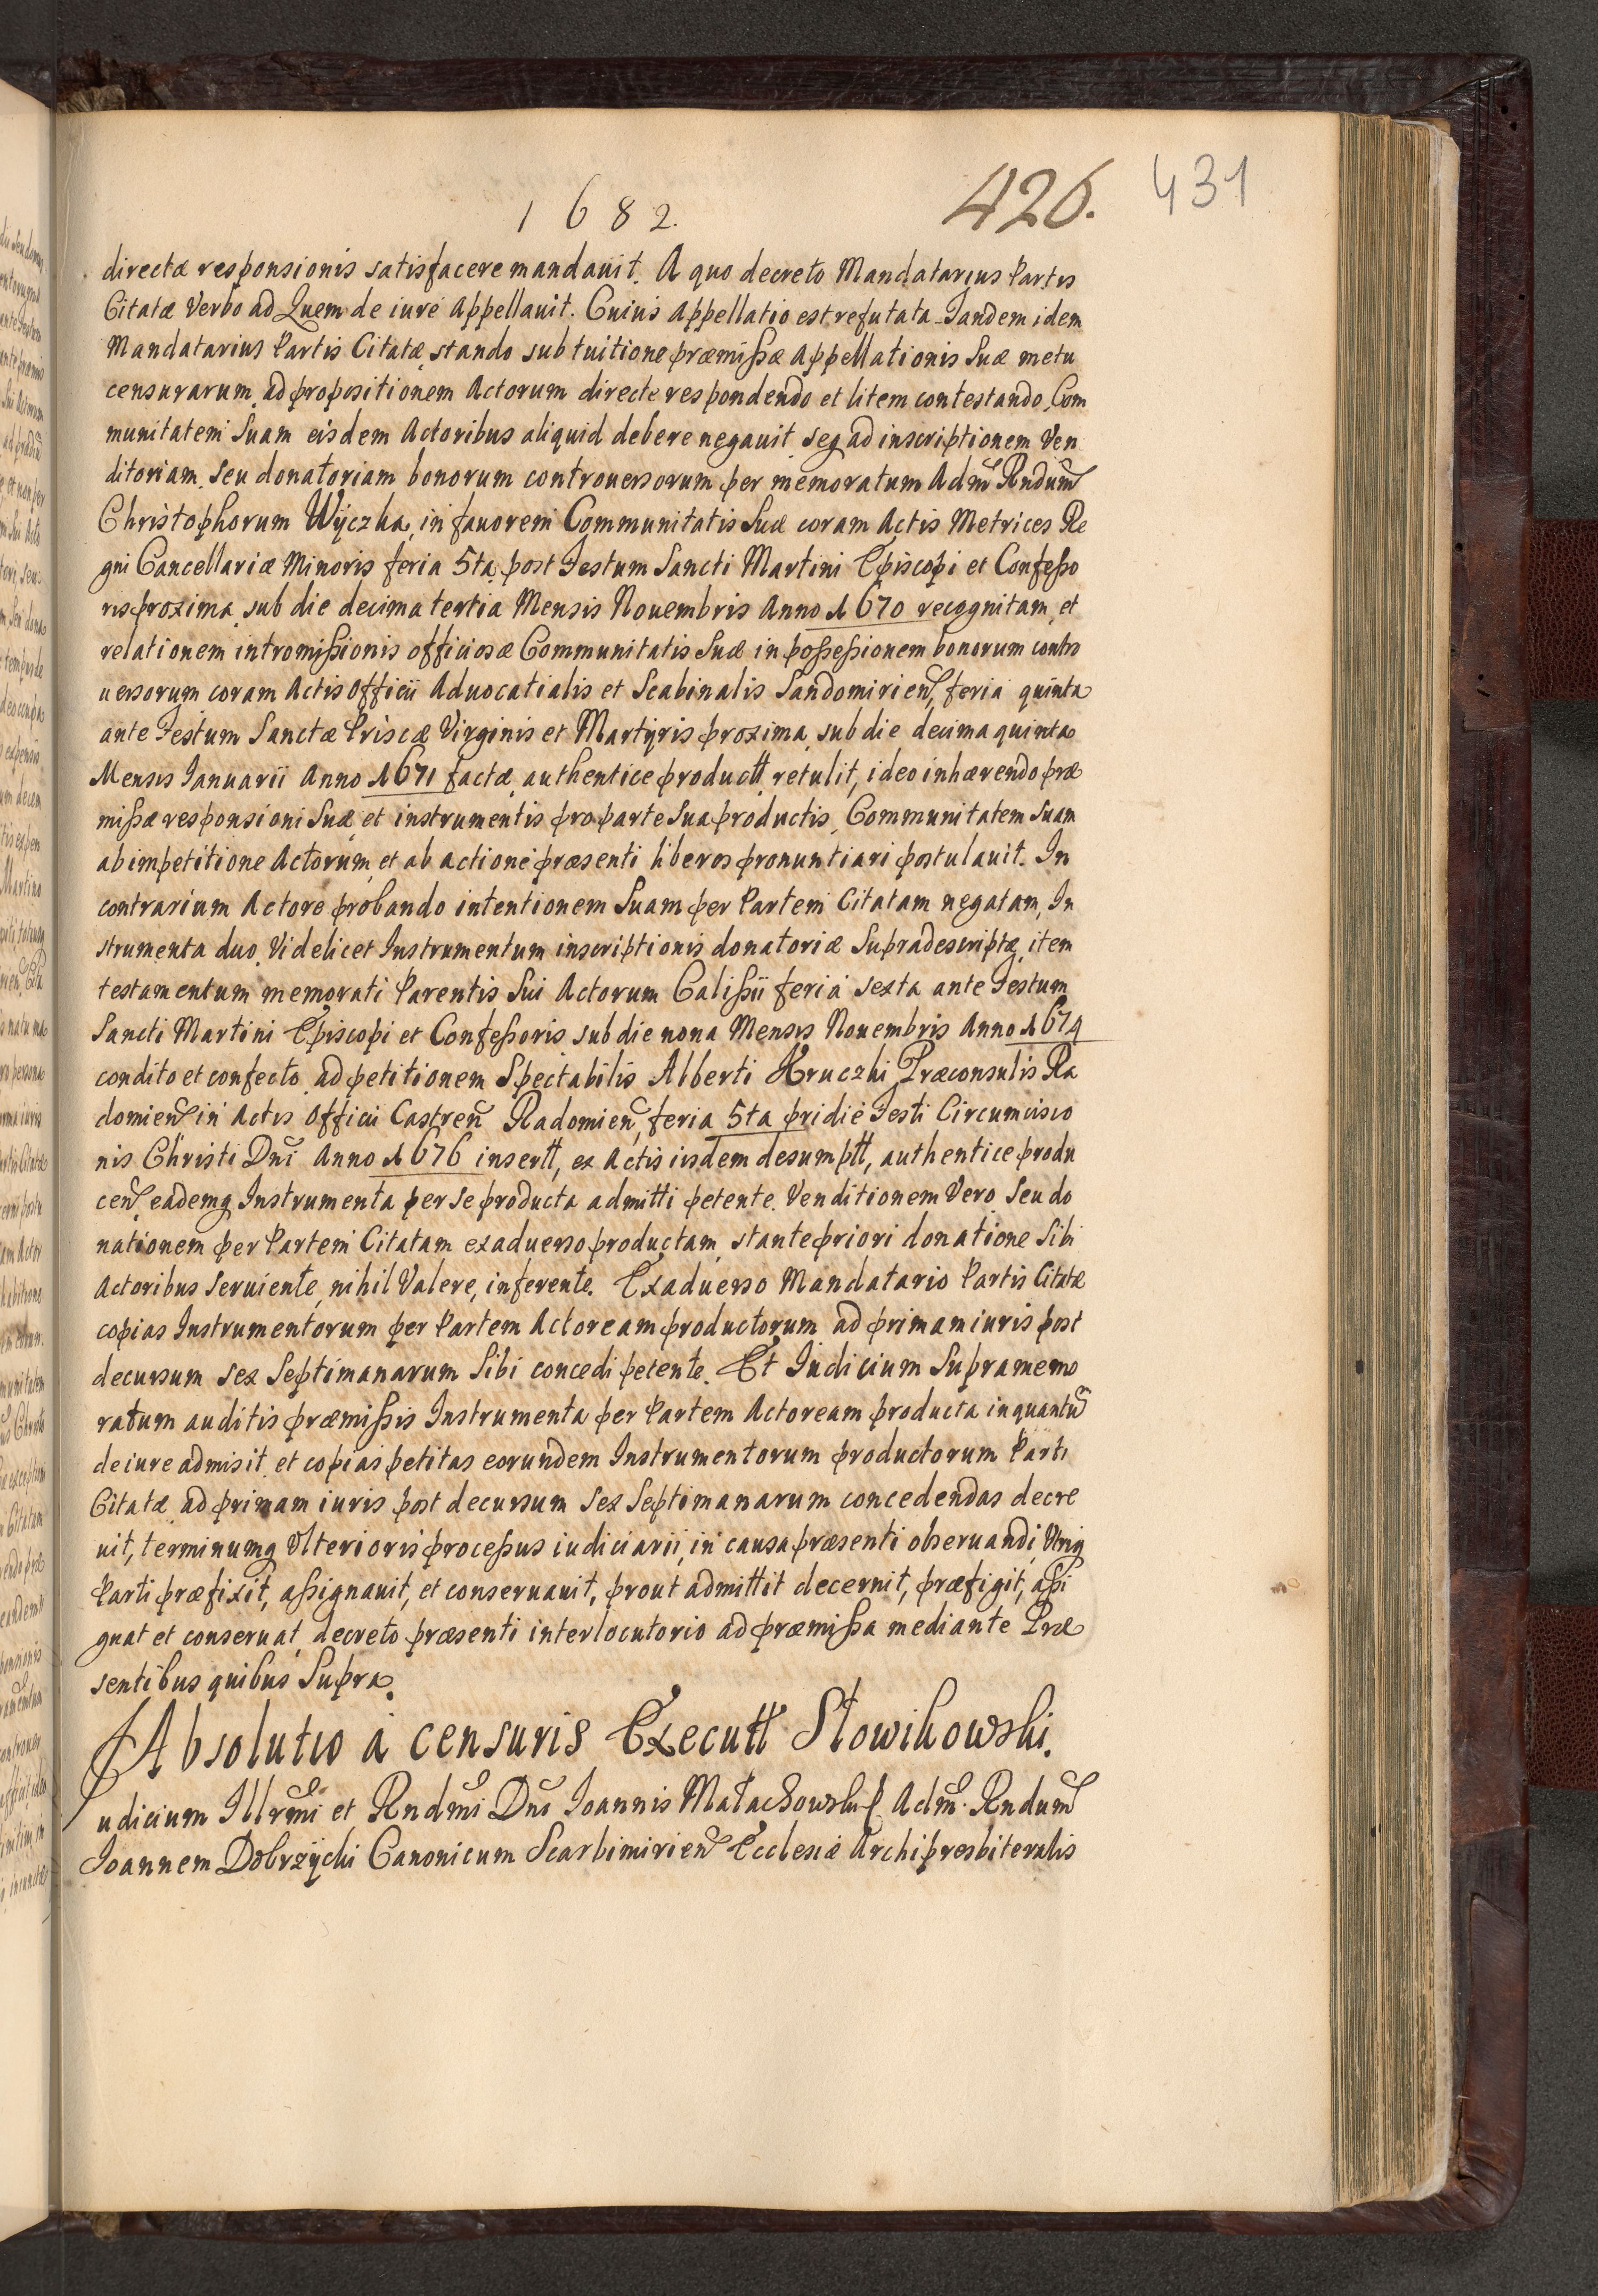 1682.
426.
431
directæ responsionis satisfacere mandauit. A quo decreto Mandatarius Partis
Citatæ Verbo ad Quem de iure Appellauit. Cuius Appellatio est refutata. Tandem idem
Mandatarius Partis Citatæ, stando sub tuitione præmißæ Appellationis Suæ metu
censurarum, ad propositionem Actorum directe respondendo et litem contestando, Com
munitatem Suam eisdem Actoribus aliquid debere negauit, seq ad inscriptionem Ven
ditoriam, seu donatoriam bonorum controuersorum per memoratum Adm Rndum
Christophorum Wÿczka, in fauorem Communitatis Suæ coram Actis Metrices Re
gni Cancellariæ Minoris feria 5ta post Festum Sancti Martini Episcopi et Confeßo
ris proxima, sub die decima tertia Mensis Nouembris Anno 1670 recognitam, et
relationem intromißionis officiosæ Communitatis Suæ in poßeßionem bonorum contro
uersorum coram Actis Officii Aduocatialis et Scabinalis Sandomirien, feria quinta
ante Festum Sanctæ Priscæ Virginis et Martyris proxima, sub die decima quinta
Mensis Ianuarii Anno 1671 factæ, authentice productt, retulit, ideo inhærendo præ
mißæ responsioni Suæ, et instrumentis pro parte Sua productis, Communitatem suam
ab impetitione Actorum, et ab actione præsenti liberos pronuntiari postulauit. In
contrarium Actore probando intentionem Suam per Partem Citatam negatam, In
strumenta duo, Videlicet Instrumentum inscriptionis donatoriæ Supradescriptæ, item
testamentum memorati Parentis Sui Actorum Calißii feria sexta ante Festum
Sancti Martini Episcopi et Confeßoris sub die nona Mensis Nouembris Anno 1674
condito et confecto, ad petitionem Spectabilis Alberti Kruczki Præconsulis Ra
domien in Actis Officii Castren Radomien, feria 5ta pridie Festi Circumcisio
nis Christi Dni Anno 1676 insertt, ex Actis iisdem desumptt, authentice produ
cen, eademq Instrumenta per se producta admitti petente. Venditionem Vero Seu do
nationem per Partem Citatam exaduerso productam, stante priori donatione Sibi
Actoribus Seruiente, nihil Valere, inferente. Exaduerso Mandatario Partis Citatæ
copias Instrumentorum per Partem Actoream productorum ad primam iuris post
decursum sex Septimanarum Sibi concedi petente. Et Iudicium Supramemo
ratum auditis præmißis Instrumenta per Partem Actoream producta inquantu
de iure admisit, et copias petitas eorundem Instrumentorum productorum Parti
Citatæ ad primam iuris post decursum Sex Septimanarum concedendas decre
uit, terminumq Vlterioris proceßus iudiciarii, in causa præsenti obseruandi, Vtriq
Parti præfixit, aßignauit, et conseruauit, prout admittit decernit, præfigit, aßi
gnat et conseruat, decreto præsenti interlocutorio ad præmißa mediante Præ
sentibus quibus Supra.
Absolutio à censuris Executt Słowikowski.
Iudicium Illrmi et Rndmi Dni Ioannis Małachowski Adm Rndum
Ioannem Dobrzÿcki Canonicum Scarbimirien Ecclesiæ Archipresbiteralis